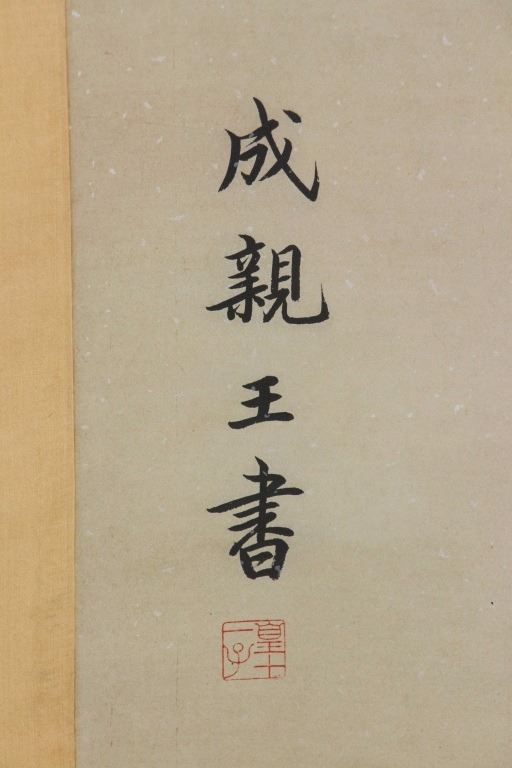 成親王書
皇十
一子